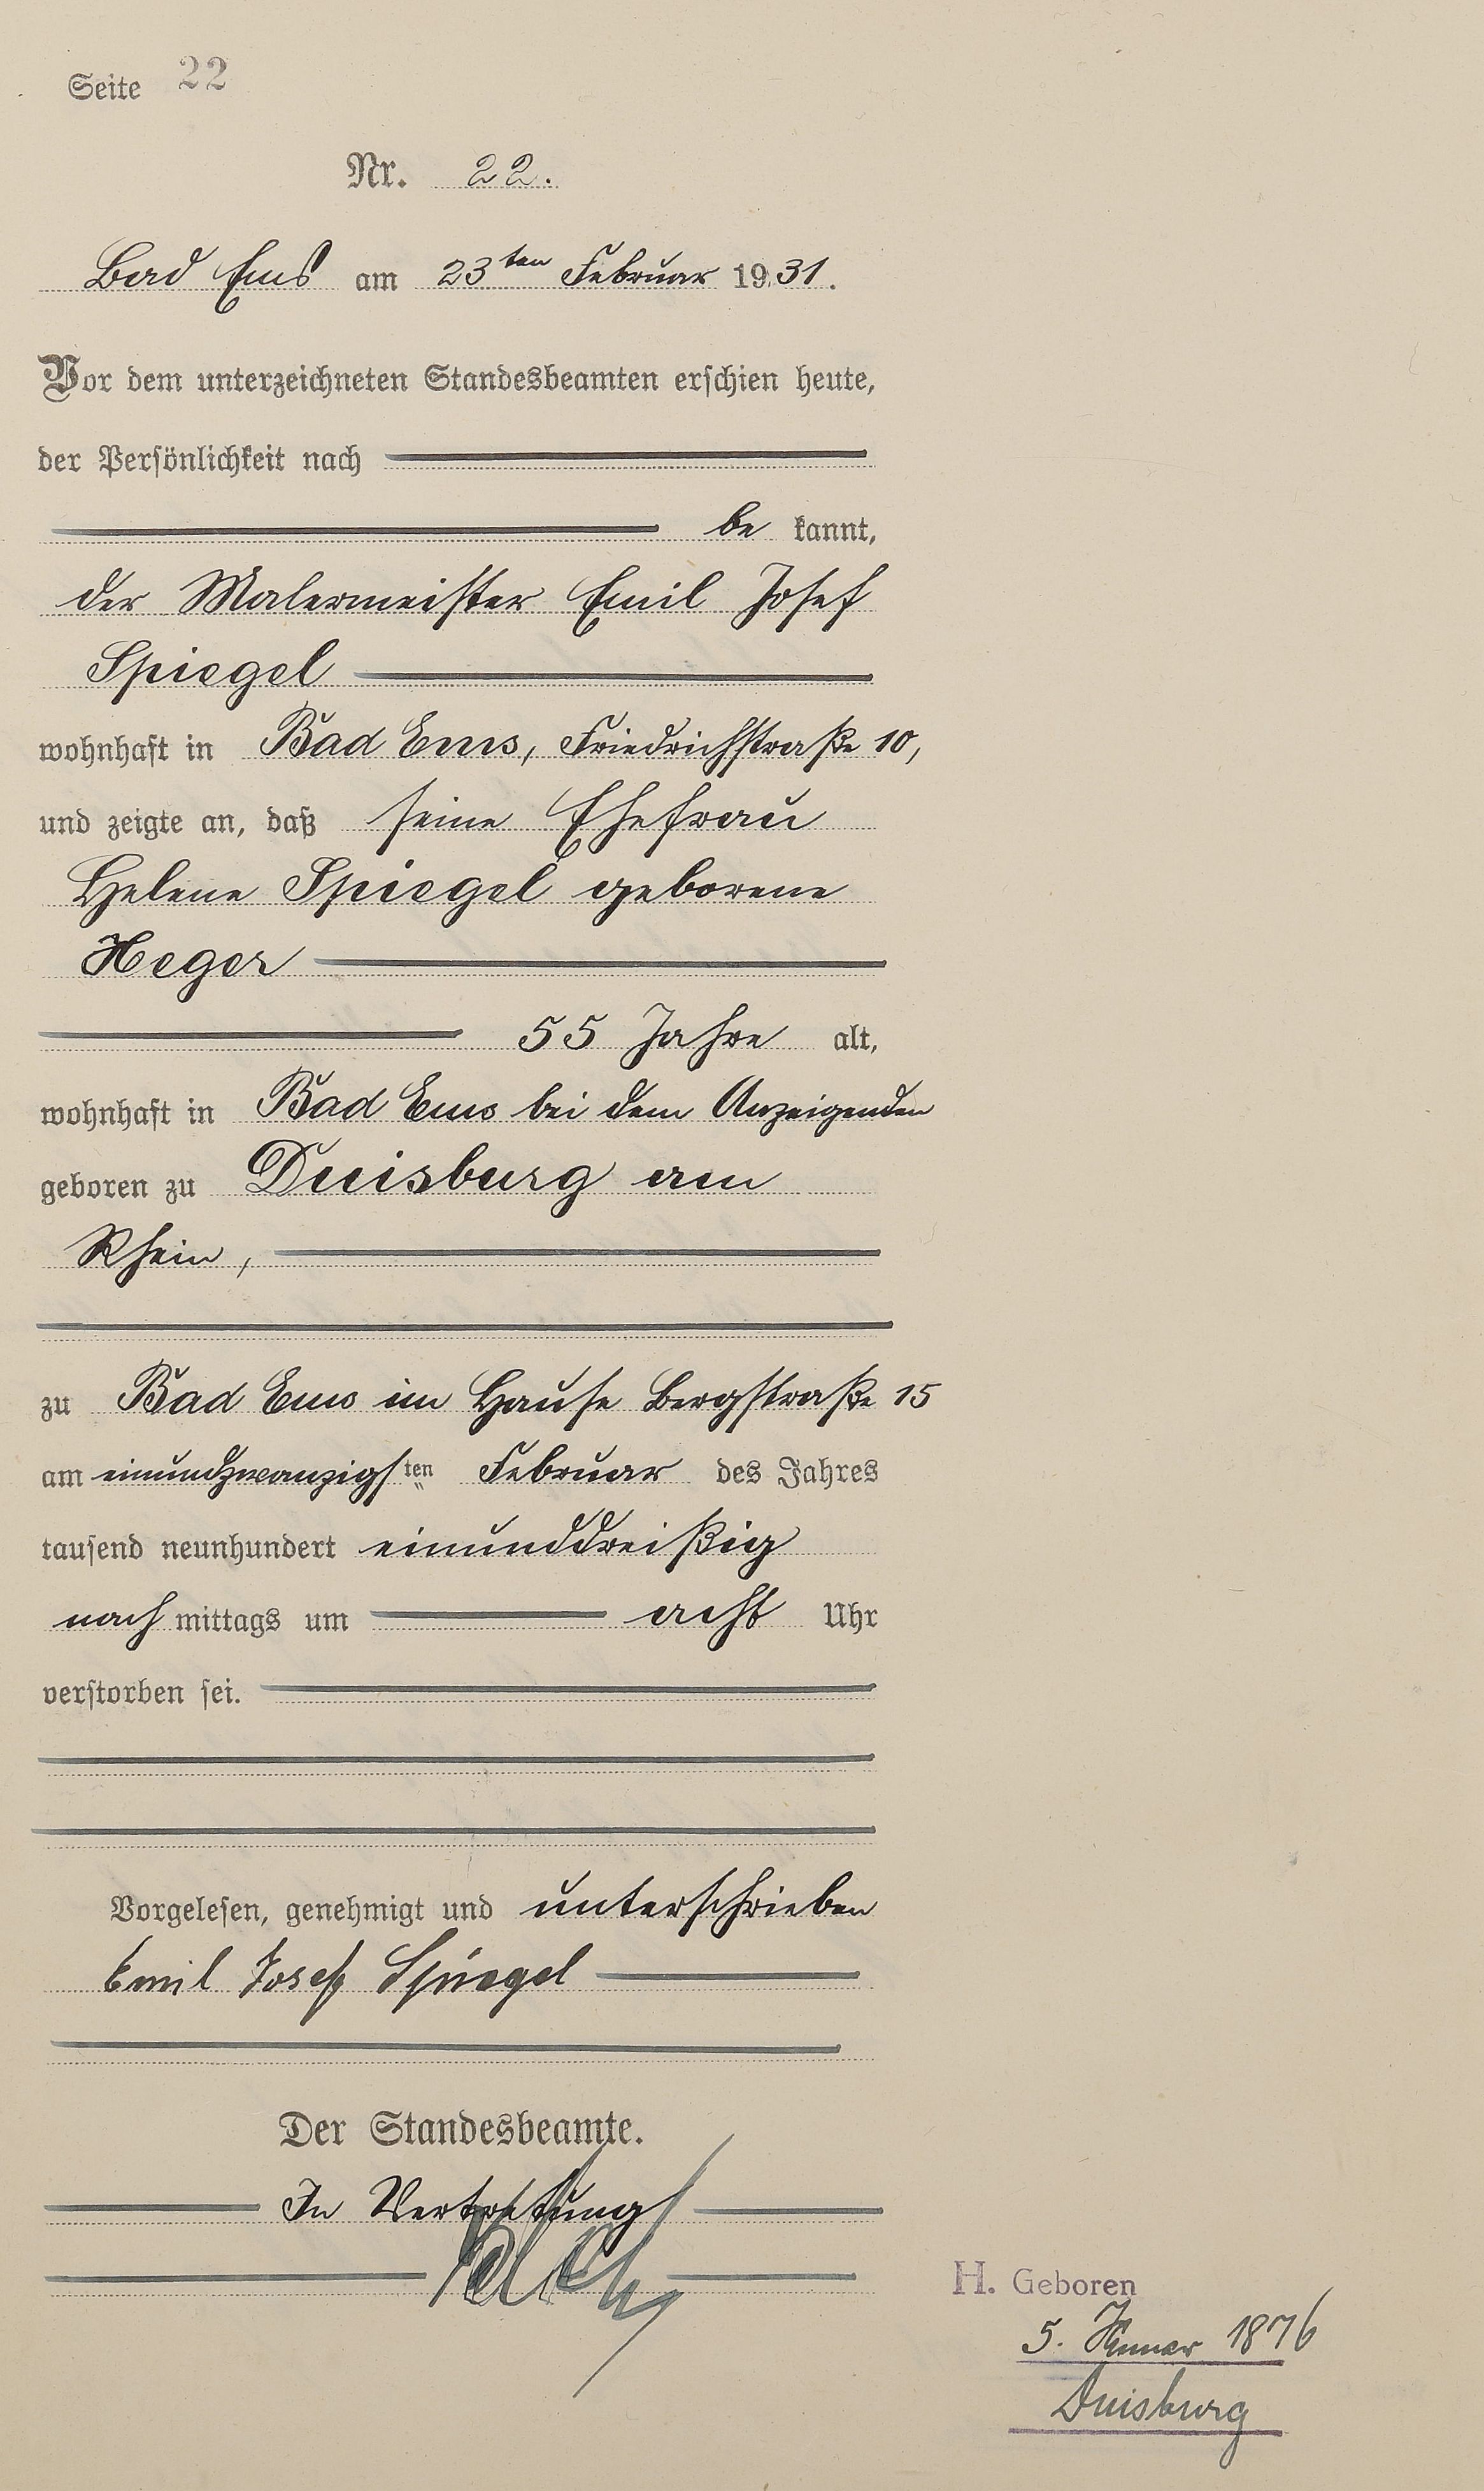 Seite 22
Nr. 22.
Bad Ems am 23ten Februar 1931.
Vor dem unterzeichneten Standesbeamten erschien heute,
der Persönlichkeit nach
be kannt,
der Malermeister Emil Josef
Spiegel
wohnhaft in Bad Ems, Friedrichstraße 10,
und zeigte an, daß seine Ehefrau
Helene Spiegel geborene
Heger
55 Jahre alt,
wohnhaft in Bad Ems bei dem Anzeigenden
geboren zu Duisburg am
Rhein,
zu Bad Ems im Hause Bergstraße 15
am einundzwanzigsten Februar des Jahres
tausend neunhundert einunddreißig
nach mittags um acht Uhr
verstorben sei.
Vorgelesen, genehmigt und unterschrieben
Emil Josef Spiegel
Der Standesbeamte.
In Vertretung
H. Geboren
5. Januar 1876
Duisburg